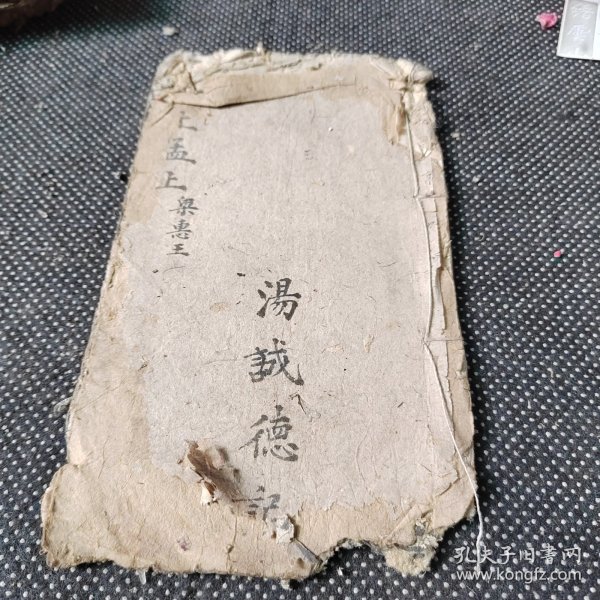 上孟上
梁惠王
湯誠德記
孔夫子旧书网
www.kongfz.com